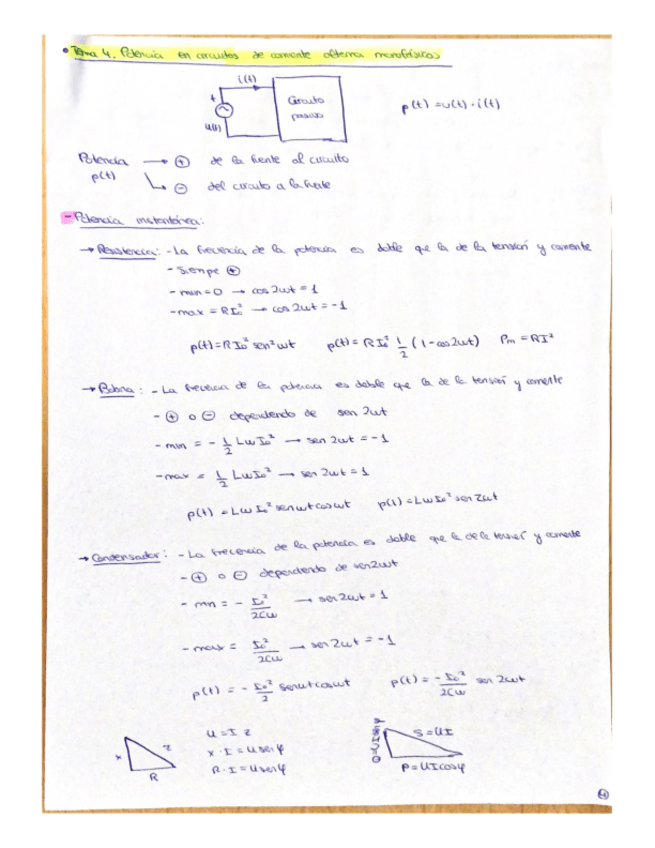 • Tema 4. Potencia en circuitos de corriente alterna monofásicos
i(t)
+
u(t)
Circuito
pasivo
p(t) = u(t) · i(t)
Potencia → ⊕ de la fuente al circuito
p(t) ↳ ⊖ del circuito a la fuente
- Potencia instantánea:
→ Resistencia: - La frecuencia de la potencia es doble que la de la tensión y corriente
- Siempre ⊕
- min = 0 → cos 2wt = 1
- max = RI₀² → cos 2wt = -1
p(t) = R I₀² sen² wt p(t) = R I₀² 1/2 (1 - cos 2wt) Pm = RI²
→ Bobina: - La frecuencia de la potencia es doble que la de la tensión y corriente
- ⊕ o ⊖ dependiendo de sen 2wt
- min = - 1/2 Lw I₀² → sen 2wt = -1
- max = 1/2 Lw I₀² → sen 2wt = 1
p(t) = Lw I₀² sen wt cos wt p(t) = Lw I₀² sen 2wt
→ Condensador: - La frecuencia de la potencia es doble que la de la tensión y corriente
- ⊕ o ⊖ dependiendo de sen 2wt
- min = - I₀²/2Cw → sen 2wt = 1
- max = I₀²/2Cw → sen 2wt = -1
p(t) = - I₀²/2 sen wt cos wt p(t) = - I₀²/2Cw sen 2wt
x
z
R
U = I z
x · I = U sen φ
R · I = U sen φ
Q = U I sen φ
S = UI
P = UI cos φ
4